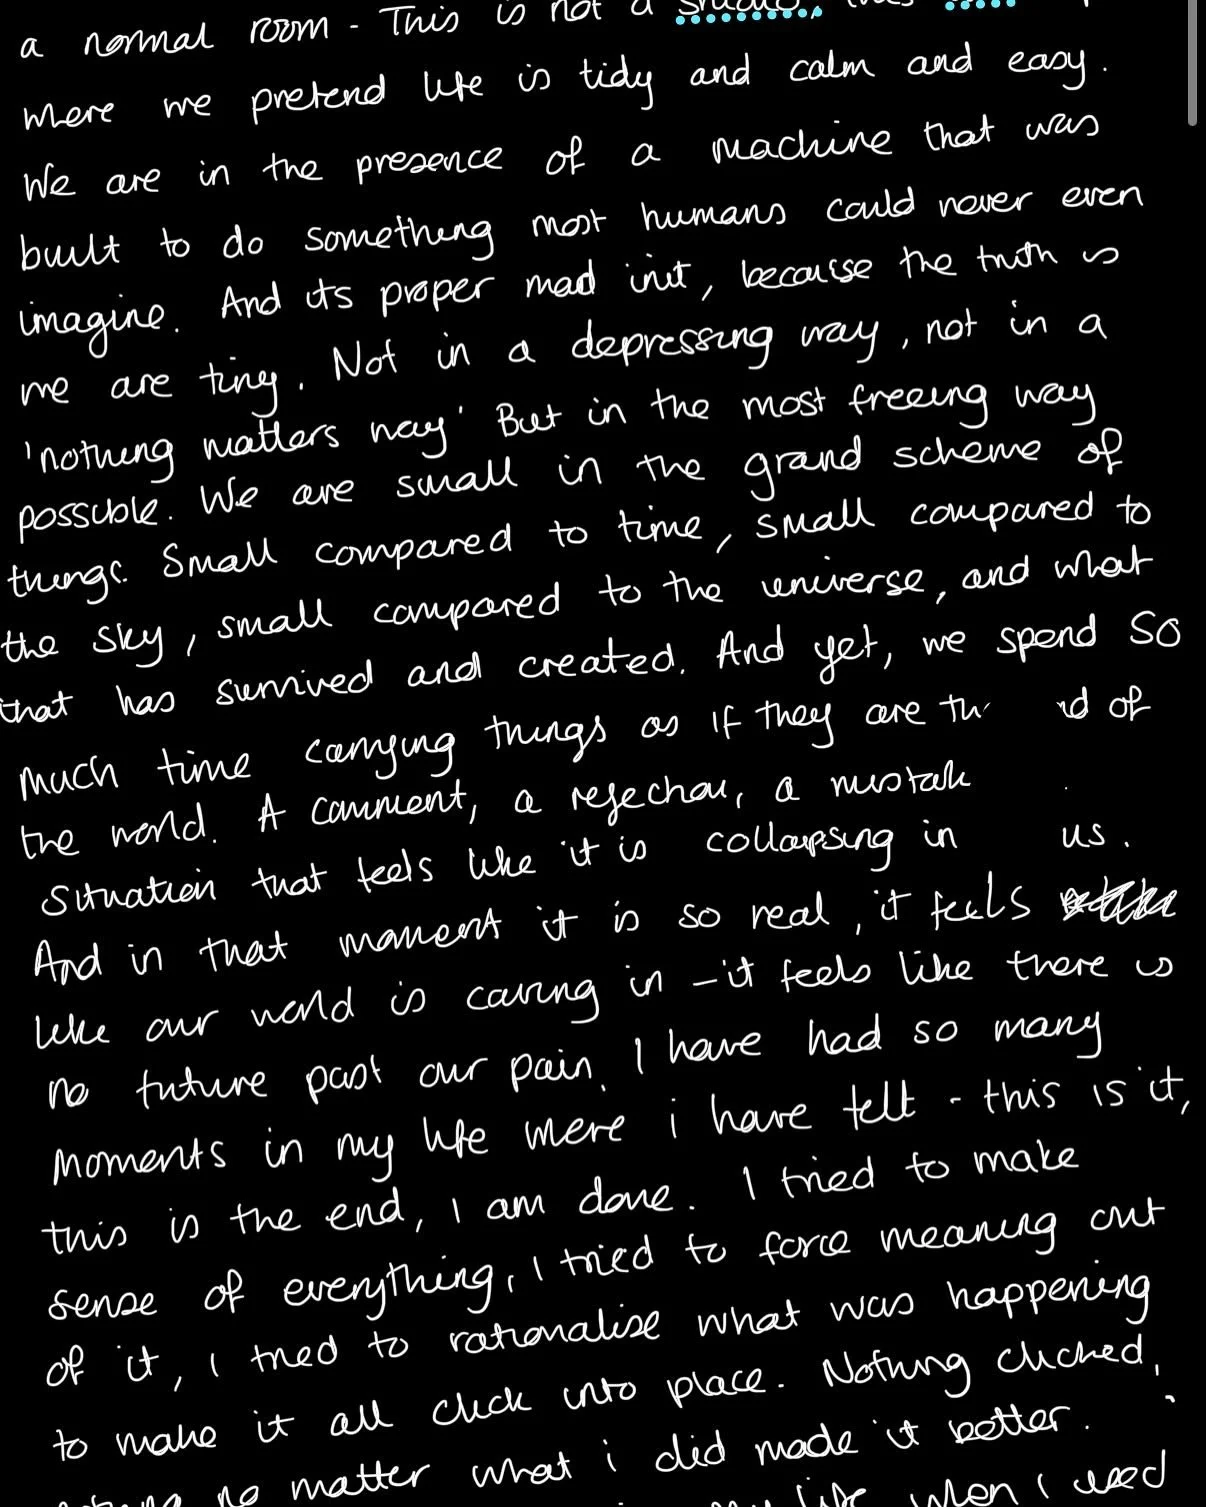 a normal room - This is not a studio, this
where we pretend life is tidy and calm and easy.
We are in the presence of a machine that was
built to do something most humans could never even
imagine. And its proper mad init, because the truth is
we are tiny. Not in a depressing way, not in a
'nothing matters way' But in the most freeing way
possible. We are small in the grand scheme of
things. Small compared to time, small compared to
the sky, small compared to the universe, and what
that has survived and created. And yet, we spend SO
much time carrying things as if they are of
the world. A comment, a rejection, a
situation that feels like it is collapsing in us.
And in that moment it is so real, it feels
like our world is caving in - it feels like there is
no future past our pain. I have had so many
moments in my life where i have felt - this is it,
this is the end, I am done. I tried to make
sense of everything, I tried to force meaning out
of it, I tried to rationalise what was happening
to make it all click into place. Nothing clicked,
no matter what i did made it better.
my life when I used